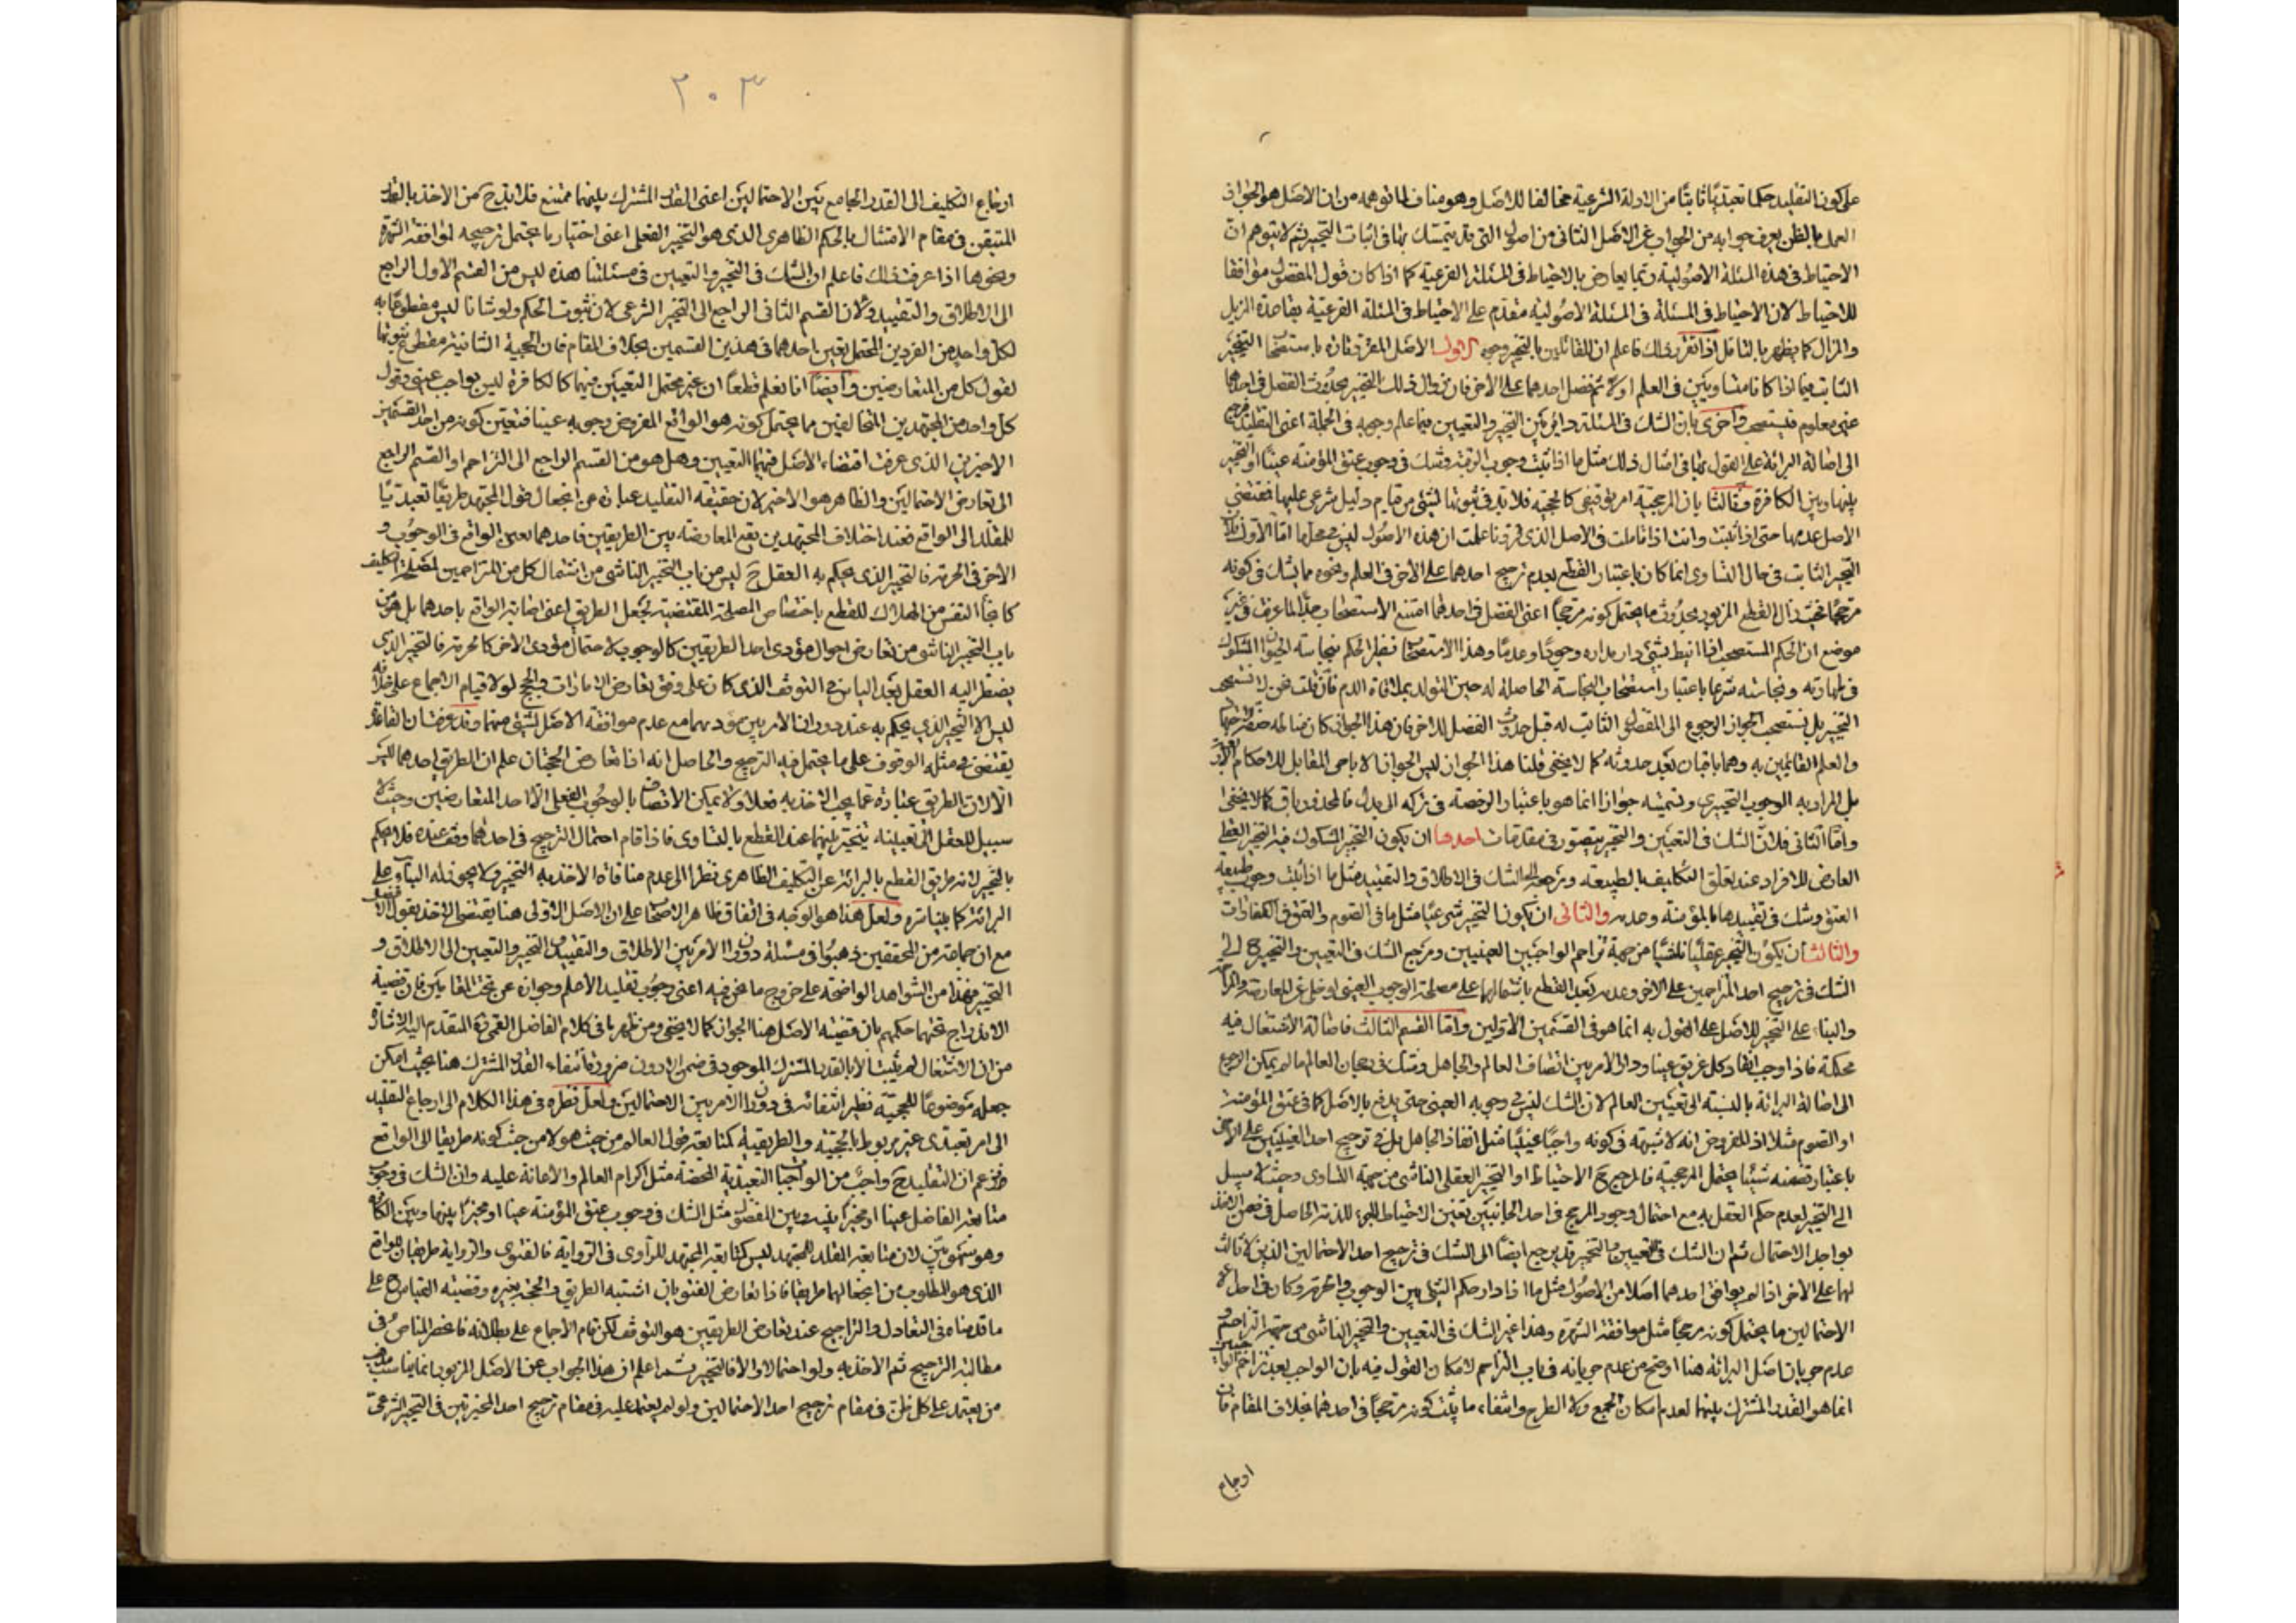 على كون التقليد حكما تعبديا ثابتا من الادلة الشرعية مخالفا للاصل وهو مناف لما توهمه من ان الاصل هو الجواز
العمل بالظن يعرف جوابه من الجواب عن الاصل الثانى من اصول التى قد يتمسك بها فى اثبات التخيير ثم لا يتوهم ان
الاحتياط فى هذه المسئلة الاصولية ربما يعارض بالاحتياط فى المسئلة الفرعية كما اذا كان قول المفضول موافقا
للاحتياط لان الاحتياط فى المسئلة فى المسئلة الاصولية مقدم على الاحتياط فى المسئلة الفرعية بقاعدة المزيل
والمزال كما يظهر بالتامل اذا تقرر ذلك فاعلم ان للقائلين بالتخيير وجوه الاول الاصل المقرر تارة باستصحاب التخيير
الثابت فيما اذا كانا متساويين فى العلم اولا ثم فضل احدهما على الاخر فان زوال ذلك التخيير بحدوث الفضل فى احدهما
غير معلوم فيستصحب واخرى بان الشك فى المسئلة دائر بين التخيير والتعيين فيما علم وجوبه فى الجملة اعنى التقليد فيرجع
الى اصالة البرائة على القول بها فى امثال ذلك مثل ما اذا ثبت وجوب الرقبة وشك فى وجوب عتق المؤمنة عينا او التخيير
بينها وبين الكافرة وثالثا بان المرجحية امر توقيفى كالحجية فلا بد فى ثبوتها لشئ من قيام دليل شرعى عليها فمقتضى
الاصل عدمها حتى اذا ثبتت وانت اذا تاملت فى الاصل الذى قررنا علمت ان هذه الاصول ليس فى محلها اما الاول فلان
التخيير الثابت فى حال التساوى انما كان باعتبار القطع بعدم ترجيح احدهما على الاخر فى العلم ونحوه مما يشك فى كونه
مرجحا فحيث زال القطع المزبور بحدوث ما يحتمل كونه مرجحا اعنى الفضل فى احدهما امتنع الاستصحاب جدا لما عرف فى غير
موضع ان الحكم المستصحب اذا انيط بشئ دار مداره وجودا وعدما وهذا الاستصحاب نظير الحكم بنجاسة الحيوان المشكوك
فى طهارته ونجاسته شرعا باعتبار استصحاب النجاسة الحاصلة له حين التولد بملاقاة الدم فان قلت نحن لا نستصحب
التخيير بل نستصحب الجواز الرجوع الى المفضول الثابت له قبل حدوث الفضل للاخر فان هذا الجواز كان
والعلم القائمين به وهما باقيان بعد حدوثه كما لا يخفى قلنا هذا الجواز ليس الجواز الاباحى المقابل للاحكام
بل المراد به الوجوب التخييرى وتسميته جوازا انما هو باعتبار الرخصة فى تركه الى بدل فالمحذور باق كما لا يخفى
واما الثانى فلان الشك فى التعيين والتخيير يتصور فى مقامات احدها ان يكون التخيير المشكوك فيه التخيير العقلى
العارض للافراد عند تعلق التكليف بالطبيعة ومرجعه الى الشك فى الاطلاق والتقييد مثل ما اذا ثبت وجوب طبيعة
العتق وشك فى تقييدها بالمؤمنة وعدمه والثانى ان يكون التخيير شرعيا مثل ما فى الصوم والعتق فى الكفارات
والثالث ان يكون التخيير عقليا ناشيا من جهة تزاحم الواجبين العينيين ومرجع الشك فى التعيين والتخيير ح الى
الشك فى ترجيح احد المتزاحمين على الاخر وعدمه بعد القطع باشتمالهما على مصلحة الوجوب العينى
والبناء على التخيير للاصل على القول به انما هو فى القسمين الاولين واما القسم الثالث فاصالة الاشتغال فيه
محكمة فاذا وجب انقاذ كل غريق عينا ودار الامر بين انقاذ العالم والجاهل وشك فى رجحان العالم ما لم يمكن الرجوع
الى اصالة البرائة بالنسبة الى تعيين العالم لان الشك ليس فى وجوبه العينى حتى يدفع بالاصل كما فى عتق المؤمنة
او الصوم مثلا اذ المفروض انه لا شبهة فى كونه واجبا عينيا مثل انقاذ الجاهل بل فى ترجيح احد العينيين على الاخر
باعتبار تضمنه شيئا يحتمل المرجحية فالمرجع ح الاحتياط او التخيير العقلى الناشى من جهة التساوى وحيث لا سبيل
الى التخيير لعدم حكم العقل به مع احتمال وجود المرجح فى احد الجانبين تعين الاحتياط
ثم ان الشك فى التعيين والتخيير قد يرجع ايضا الى الشك فى ترجيح احد الاحتمالين الذين لا ثالث
لهما على الاخر اذا لم يوافق احدهما اصلا من الاصول مثل ما اذا دار حكم الشئ بين الوجوب والحرمة وكان فى احد
الاحتمالين ما يحتمل كونه مرجحا مثل موافقة الشهرة وهذا غير الشك فى التعيين والتخيير الناشى من جهة التزاحم و
عدم جريان اصل البرائة هنا اوضح من عدم جريانه فى باب التزاحم لامكان القول فيه بان الواجب بعد تزاحم الواجبين
انما هو القدر المشترك بينهما لعدم امكان الجمع ولا الطرح وانتفاء ما يثبت كونه مرجحا فى احدهما بخلاف المقام فان
ارجاع
٢٠٣
ارجاع التكليف الى القدر الجامع بين الاحتمالين اعنى القدر المشترك بينهما ممتنع فلا بد ح من الاخذ بالقدر
المتيقن فى مقام الامتثال بالحكم الظاهرى الذى هو التخيير الفعلى اعنى اختيار ما يحتمل ترجيحه لموافقة الشهرة
ونحوها اذا عرفت ذلك فاعلم ان الشك فى التخيير والتعيين فى مسئلتنا هذه ليس من القسم الاول الراجع
الى الاطلاق والتقييد ولا من القسم الثانى الراجع الى التخيير الشرعى لان ثبوت الحكم ولو شانا ليس مقطوعا به
لكل واحد من الفردين المحتمل تعيين احدهما فى هذين القسمين بخلاف المقام فان الحجية الشانية مقطوع ثبوتها
لقول كل من المتعارضين وايضا انا نعلم قطعا ان غير محتمل التعيين منهما كالكافرة ليس بواجب عينى وقول
كل واحد من المجتهدين المتخالفين مما يحتمل كونه هو الواقع المفروض وجوبه عينا فتعين كونه من احد القسمين
الاخيرين الذى عرفت اقتضاء الاصل فيهما التعيين وهل هو من القسم الراجع الى التزاحم او القسم الراجع
الى تعارض الاحتمالين والظاهر هو الاخير لان حقيقة التقليد عبارة عن انجعال قول المجتهد طريقا تعبديا
للمقلد الى الواقع فعند اختلاف المجتهدين يقع المعارضة بين الطريقين فاحدهما يعين الواقع فى الوجوب و
الاخر فى الحرمة فالتخيير الذى يحكم به العقل ح ليس من باب التخيير الناشى من اشتمال كل من المتزاحمين لمصلحة التكليف
كانجاء النفس من الهلاك للقطع باختصاص المصلحة المقتضية لجعل الطريق اعنى اصابة الواقع باحدهما بل هو من
باب التخيير الناشى من تعارض احوال مؤدى احد الطريقين كالوجوب لاحتمال مؤدى الاخر كالحرمة فالتخيير الذى
يضطر اليه العقل بعد الياس عن التوقف الذى كان على وفق تعارض الامارات والحجج لولا قيام الاجماع على خلافه
ليس الا التخيير الذى يحكم به عند دوران الامر بين مؤديهما مع عدم موافقة الاصل لشئ منهما وقد عرفت ان القاعدة
يقتضى فى مثله الوقوف على ما يحتمل فيه الترجيح والحاصل انه اذا تعارض الحجتان علم ان الطريق احدهما ليس
الا لان الطريق عبارة عما يجب الاخذ به فعلا ولا يمكن الاتصاف بالوجوب الفعلى الا احد المتعارضين وحيث لا
سبيل للعقل الى تعيينه يتخير بينهما عند القطع بالتساوى فاذا قام احتمال الترجيح فى احدهما وقف عنده فلا يحكم
بالتخيير لانه طريق القطع بالبرائة عن التكليف الظاهرى نظرا الى عدم منافاة الاخذ به التخيير ولا يجوز له البناء على
البرائة كما بيناه ولعل هذا هو الوجه فى اتفاق ظاهر الاصحاب على ان الاصل الاولى هنا يقتضى الاخذ بقول الافضل
مع ان جماعة من المحققين ذهبوا فى مسئلة دوران الامر بين الاطلاق والتقييد والتخيير والتعيين الى الاطلاق و
التخيير فهذا من الشواهد الواضحة على خروج ما نحن فيه اعنى وجوب تقليد الاعلم وجوازه عن تحت المقامين فان قضية
الاندراج تحتهما حكمهم بان قضية الاصل هنا الجواز كما لا يخفى ومن ظهر ما فى كلام الفاضل القمى ره المتقدم اليه الاشارة
من ان الاشتغال لم يثبت الا بالقدر المشترك الموجود فى ضمن الادون ضرورة انتفاء القدر المشترك هنا بحيث امكن
جعله موضوعا للحجية نظير انتفائه فى دوران الامر بين الاحتمالين ولعل نظره فى هذا الكلام الى ارجاع التقليد
الى امر تعبدى غير مربوط بالحجية والطريقية كمتابعة قول العالم من حيث هو لا من حيث كونه طريقا الى الواقع
فزعم ان التقليد ح واجب من الواجبات التعبدية المحضة مثل اكرام العالم والاعانة عليه وان الشك فى وجوب
متابعة الفاضل عينا او مخيرا بينه وبين المفضول مثل الشك فى وجوب عتق المؤمنة عينا او مخيرا بينها وبين الكافرة
وهو سهو بين لان متابعة المقلد للمجتهد ليس كمتابعة المجتهد للراوى فى الرواية فالفتوى والرواية طريقان للواقع
الذى هو المطلوب من انجعالهما طريقا فاذا تعارض الفتويان اشتبه الطريق والحجة بغيره وقضية القياس ح على
ما قدمناه فى التعادل والتراجيح عند تعارض الطريقين هو التوقف لكن قام الاجماع على بطلانه فانحصر المناص فى
مطالبة الترجيح ثم الاخذ به ولو احتمالا والا فالتخيير ثم اعلم ان هذا الجواب عن الاصل المزبور انما يناسب مذهب
من يعتمد على كل ظن فى مقام ترجيح احد الاحتمالين ولو لم يعتمد عليه فى مقام ترجيح احد الخبرين فى التخيير الشرعى